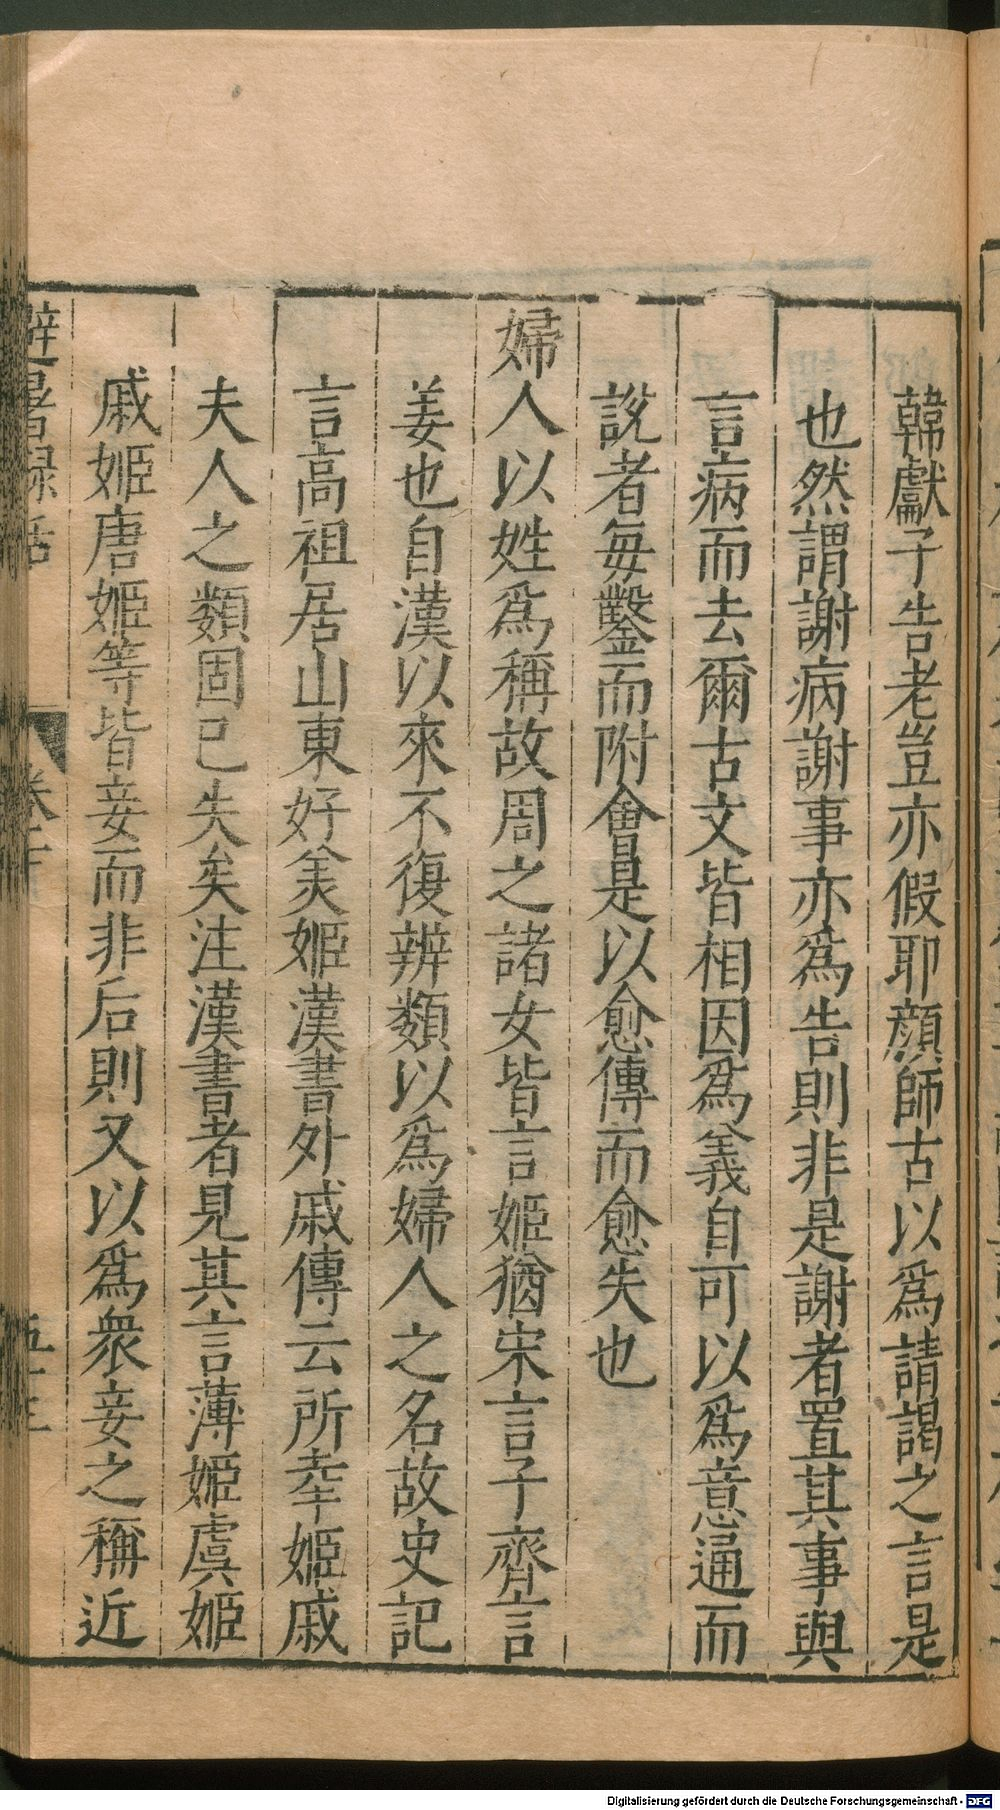 韓獻子告老豈亦假耶顔師古以爲請謁之言是
也然謂謝病謝事亦爲告則非是謝者置其事與
言病而去爾古文皆相因爲義自可以爲意通而
說者每鑿而附會是以愈傳而愈失也
婦人以姓爲稱故周之諸女皆言姬猶宋言子齊言
姜也自漢以來不復辨類以爲婦人之名故史記
言高祖居山東好美姬漢書外戚傳云所幸姬戚
夫人之類固已失矣注漢書者見其言薄姬虞姬
戚姬唐姬等皆妾而非后則又以爲衆妾之稱近
避暑録話
Digitalisierung gefördert durch die Deutsche Forschungsgemeinschaft - DFG